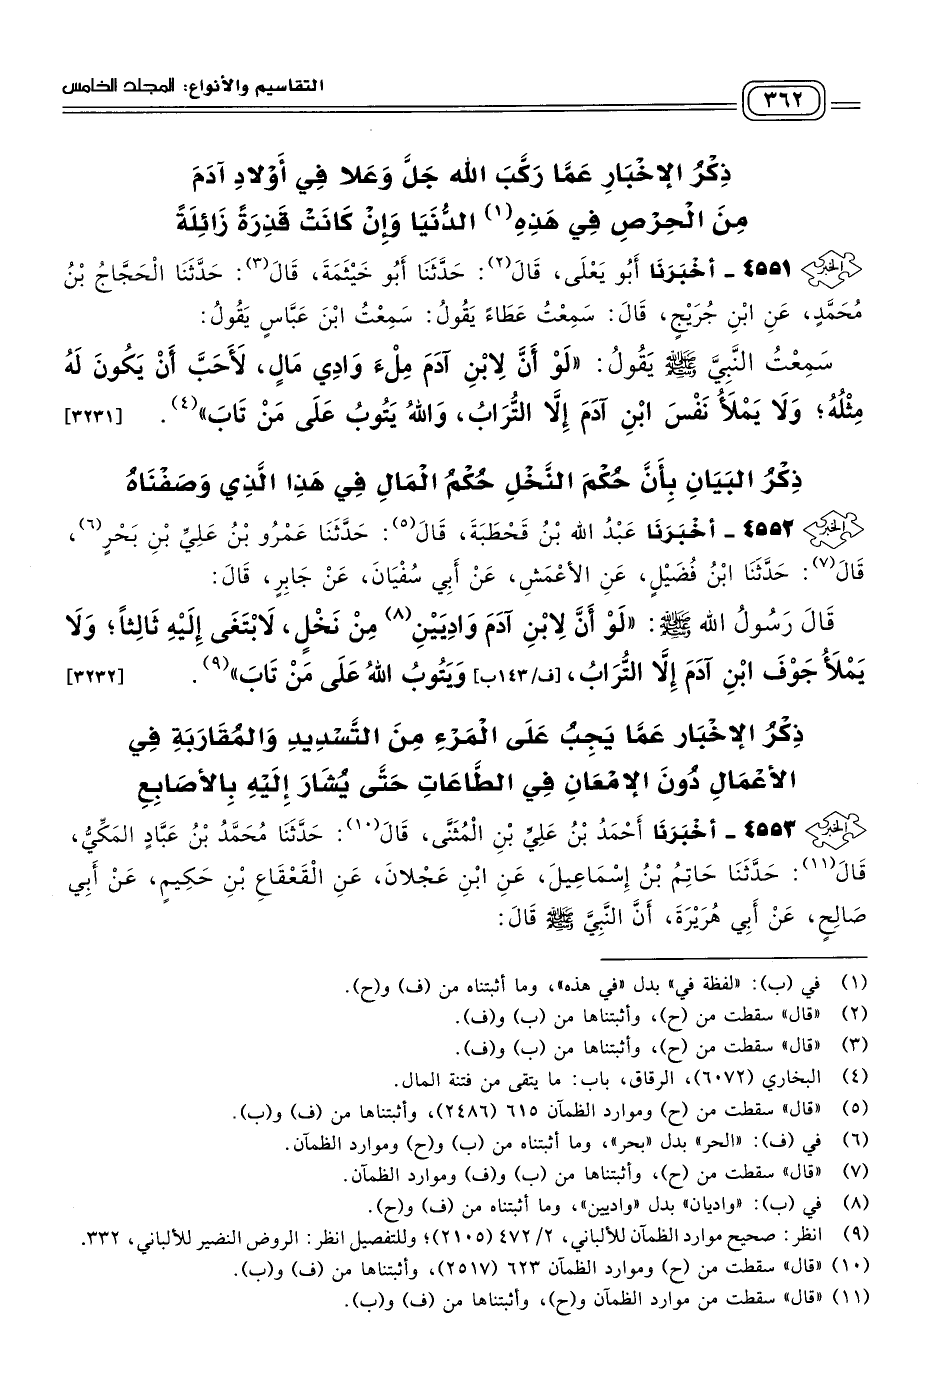 التقاسيم والأنواع: المجلد الخامس
٣٦٢
ذِكْرُ الإِخْبَارِ عَمَّا رَكَّبَ الله جَلَّ وَعَلا فِي أَوْلادِ آدَمَ
مِنَ الْحِرْصِ فِي هَذِهِ(١) الدُّنْيَا وَإِنْ كَانَتْ قَذِرَةً زَائِلَةً
٤٥٥١ ـ أخْبَرَنَا أَبُو يَعْلَى، قَالَ(٢): حَدَّثَنَا أَبُو خَيْثَمَةَ، قَالَ(٣): حَدَّثَنَا الْحَجَّاجُ بْنُ
مُحَمَّدٍ، عَنِ ابْنِ جُرَيْجٍ، قَالَ: سَمِعْتُ عَطَاءً يَقُولُ: سَمِعْتُ ابْنَ عَبَّاسٍ يَقُولُ:
سَمِعْتُ النَّبِيَّ ﷺ يَقُولُ: «لَوْ أَنَّ لِابْنِ آدَمَ مِلْءَ وَادِي مَالٍ، لَأَحَبَّ أَنْ يَكُونَ لَهُ
مِثْلُهُ؛ وَلَا يَمْلَأُ نَفْسَ ابْنِ آدَمَ إِلَّا التُّرَابُ، وَاللهُ يَتُوبُ عَلَى مَنْ تَابَ»(٤). [٣٢٣١]
ذِكْرُ البَيَانِ بِأَنَّ حُكْمَ النَّخْلِ حُكْمُ الْمَالِ فِي هَذِا الَّذِي وَصَفْنَاهُ
٤٥٥٢ ـ أخْبَرَنَا عَبْدُ الله بْنُ قَحْطَبَةَ، قَالَ(٥): حَدَّثَنَا عَمْرُو بْنُ عَلِيِّ بْنِ بَحْرٍ(٦)،
قَالَ(٧): حَدَّثَنَا ابْنُ فُضَيْلٍ، عَنِ الأَعْمَشِ، عَنْ أَبِي سُفْيَانَ، عَنْ جَابِرٍ، قَالَ:
قَالَ رَسُولُ الله ﷺ: «لَوْ أَنَّ لِابْنِ آدَمَ وَادِيَيْنِ(٨) مِنْ نَخْلٍ، لَابْتَغَى إِلَيْهِ ثَالِثاً؛ وَلَا
يَمْلَأُ جَوْفَ ابْنِ آدَمَ إِلَّا التُّرَابُ، [ف/١٤٣ب] وَيَتُوبُ اللهُ عَلَى مَنْ تَابَ»(٩). [٣٢٣٢]
ذِكْرُ الإِخْبَارِ عَمَّا يَجِبُ عَلَى الْمَرْءِ مِنَ التَّسْدِيدِ وَالمُقَارَبَةِ فِي
الأَعْمَالِ دُونَ الإِمْعَانِ فِي الطَّاعَاتِ حَتَّى يُشَارَ إِلَيْهِ بِالأَصَابِعِ
٤٥٥٣ ـ أخْبَرَنَا أَحْمَدُ بْنُ عَلِيِّ بْنِ الْمُثَنَّى، قَالَ(١٠): حَدَّثَنَا مُحَمَّدُ بْنُ عَبَّادٍ المَكِّيُّ،
قَالَ(١١): حَدَّثَنَا حَاتِمُ بْنُ إِسْمَاعِيلَ، عَنِ ابْنِ عَجْلانَ، عَنِ الْقَعْقَاعِ بْنِ حَكِيمٍ، عَنْ أَبِي
صَالِحٍ، عَنْ أَبِي هُرَيْرَةَ، أَنَّ النَّبِيَّ ﷺ قَالَ:
(١) في (ب): «لفظة في» بدل «في هذه»، وما أثبتناه من (ف) و(ح).
(٢) «قال» سقطت من (ح)، وأثبتناها من (ب) و(ف).
(٣) «قال» سقطت من (ح)، وأثبتناها من (ب) و(ف).
(٤) البخاري (٦٠٧٢)، الرقاق، باب: ما يتقى من فتنة المال.
(٥) «قال» سقطت من (ح) وموارد الظمآن ٦١٥ (٢٤٨٦)، وأثبتناها من (ف) و(ب).
(٦) في (ف): «الحر» بدل «بحر»، وما أثبتناه من (ب) و(ح) وموارد الظمآن.
(٧) «قال» سقطت من (ح)، وأثبتناها من (ب) و(ف) وموارد الظمآن.
(٨) في (ب): «واديان» بدل «واديين»، وما أثبتناه من (ف) و(ح).
(٩) انظر: صحيح موارد الظمآن للألباني، ٢/ ٤٧٢ (٢١٠٥)؛ وللتفصيل انظر: الروض النضير للألباني، ٣٣٢.
(١٠) «قال» سقطت من (ح) وموارد الظمآن ٦٢٣ (٢٥١٧)، وأثبتناها من (ف) و(ب).
(١١) «قال» سقطت من موارد الظمآن و(ح)، وأثبتناها من (ف) و(ب).